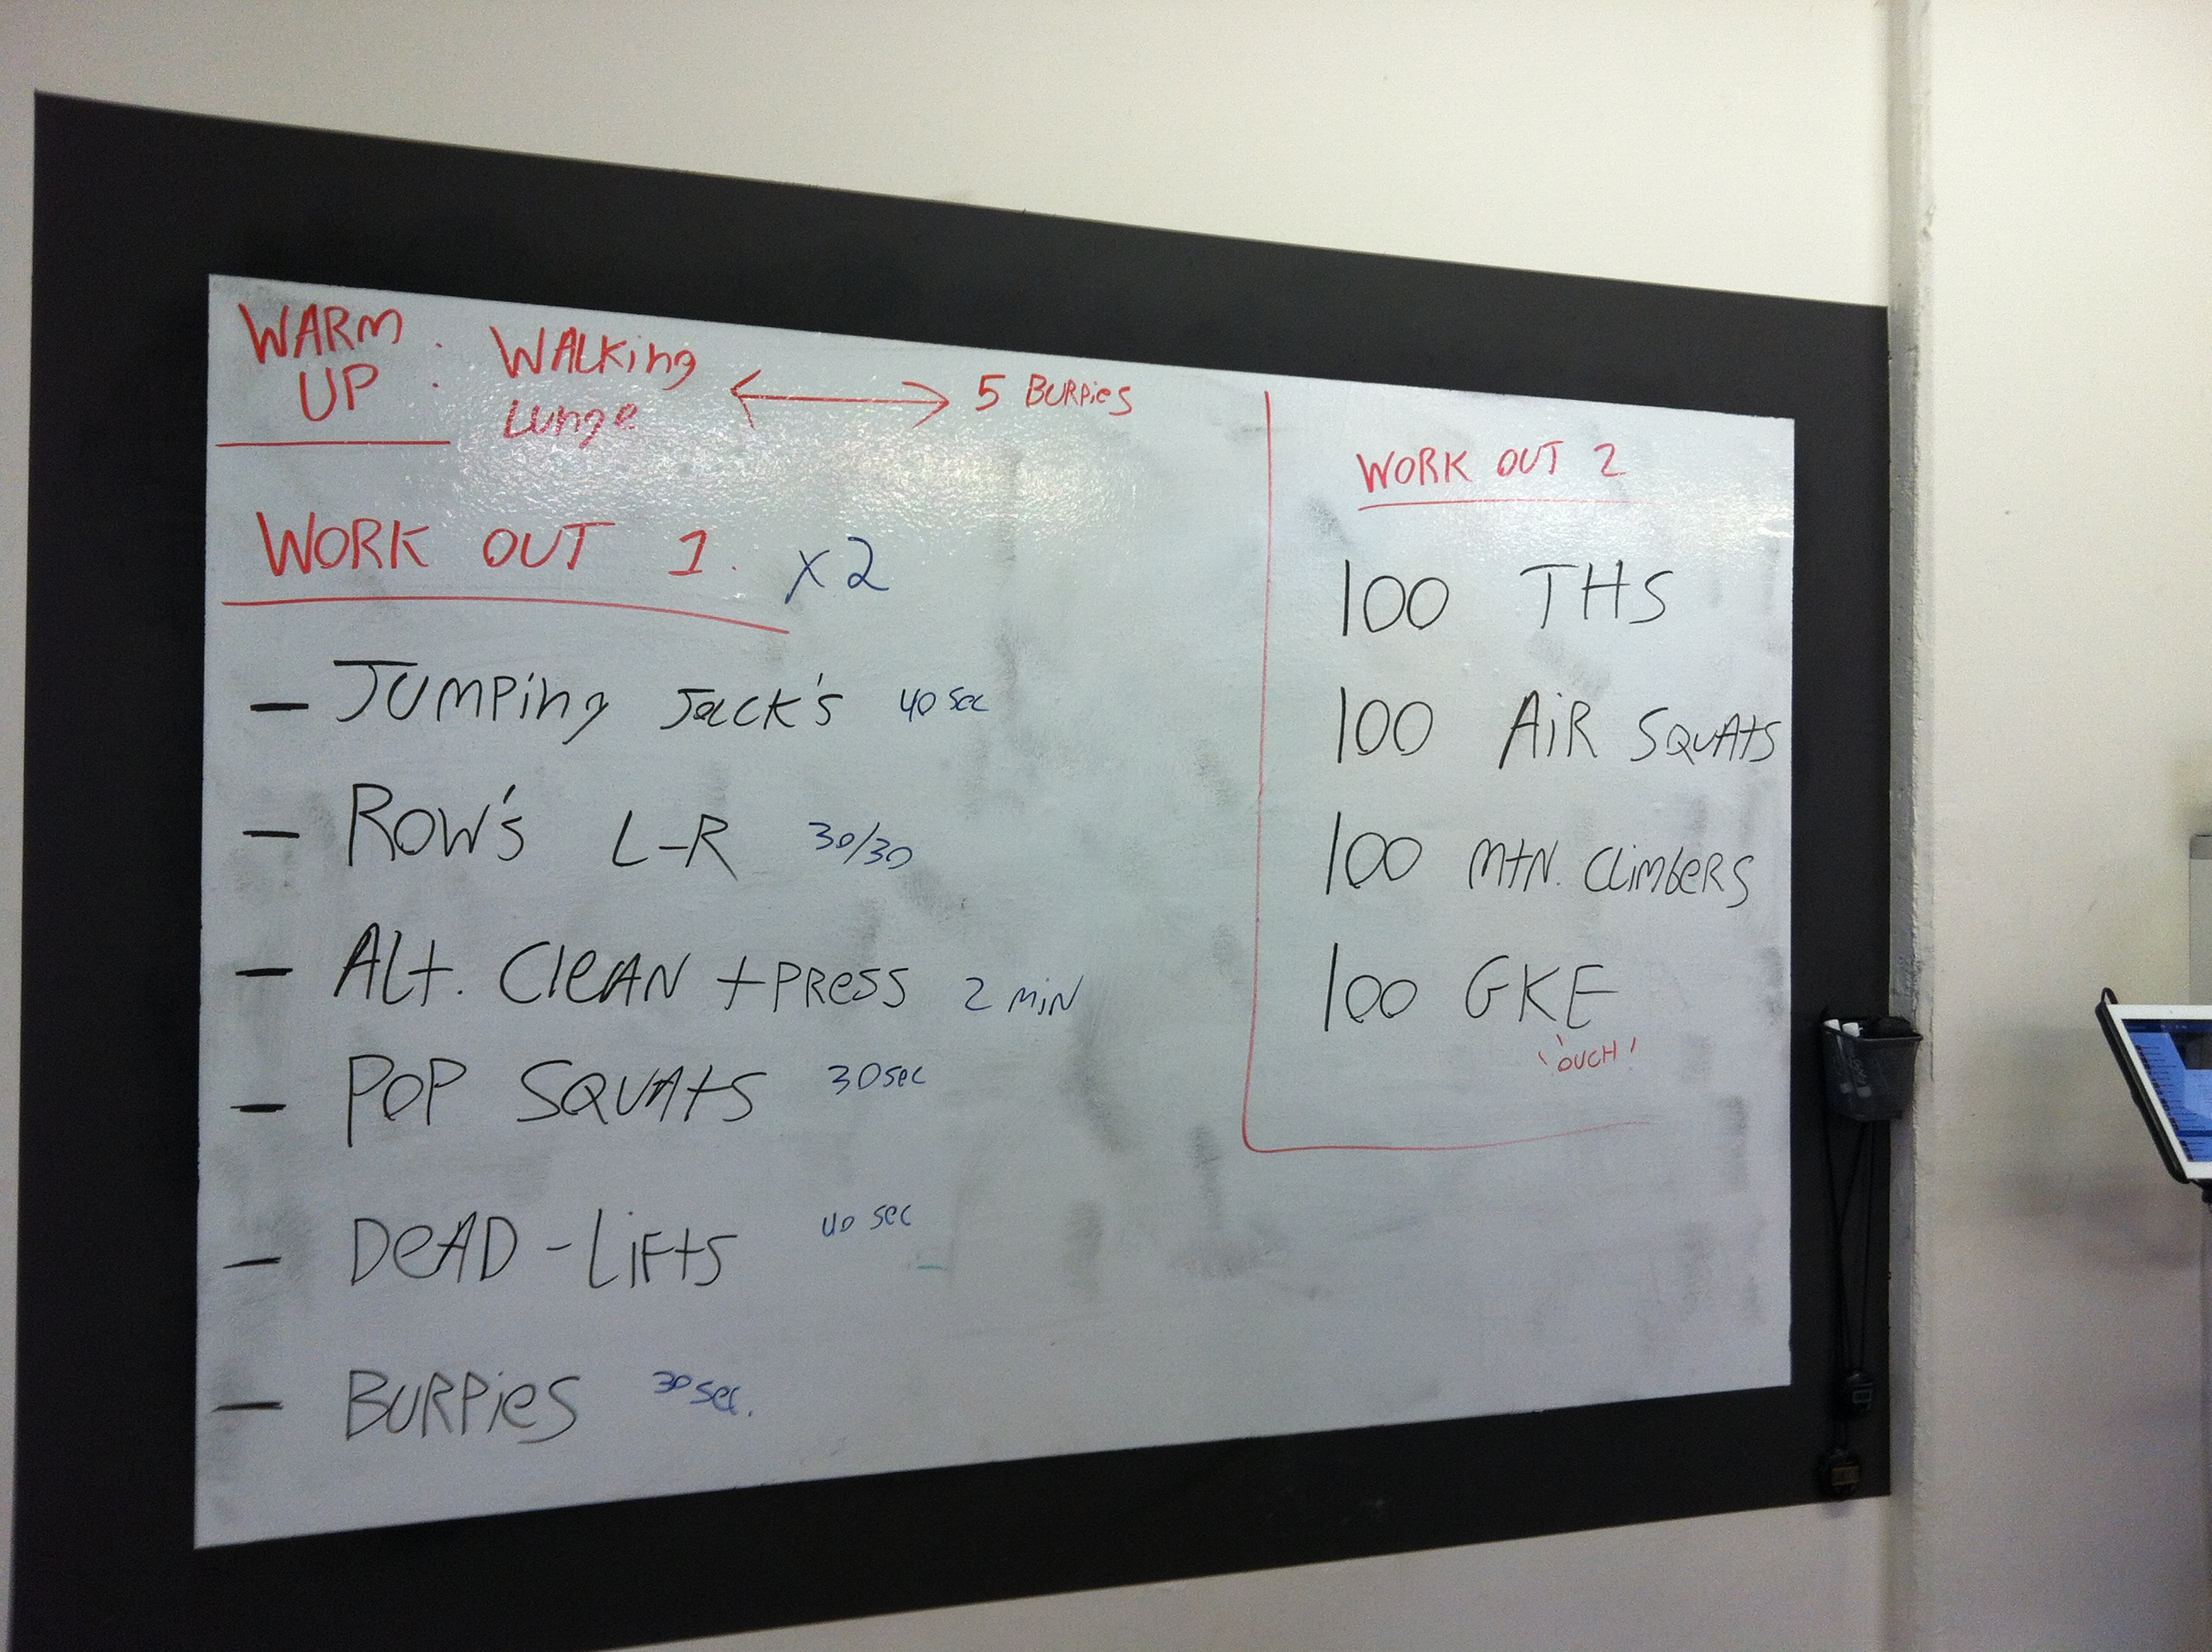 WARM UP : WALKing Lunge ⟷ 5 BURPieS
WORK OUT 1. x2
- JUMPing Jack's 40 sec
- ROW's L-R 30/30
- ALt. CleAN + PReSS 2 MiN
- POP SQUAtS 30 sec
- DeAD - LiFtS 40 sec
- BURPieS 30 sec.
WORK OUT 2
100 THS
100 AiR SQUAtS
100 MtN. CLimbeRS
100 GKE
'OUCH!